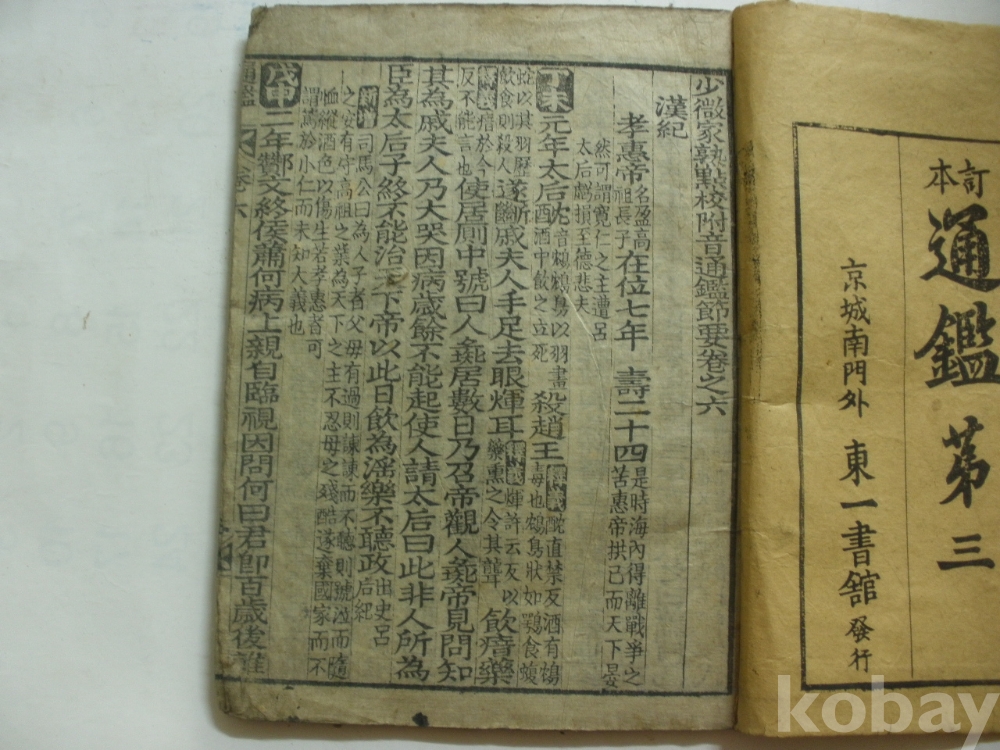 訂本
通鑑 第三
京城南門外 東一書舘 發行
少微家塾點校附音通鑑節要卷之六
漢紀
孝惠帝 名盈高祖長子 在位七年 壽二十四 是時海內得離戰爭之苦惠帝拱己而天下晏
然可謂寬仁之主遭呂太后虧損至德悲夫
丁未 元年太后 酖 音鴆鴆鳥以羽畫酒中飮之立死 殺趙王 釋義酖直禁反酒有鴆毒也鴆鳥狀如鶚食蝮
蛇以其羽歷飮食則殺人 遂斷戚夫人手足去眼煇耳 釋義煇許云反以藥熏之令其聾 飮瘖藥
釋義瘖於今反不能言也 使居厠中號曰人彘居數日乃召帝觀人彘帝見問知
其為戚夫人乃大哭因病歲餘不能起使人請太后曰此非人所為
臣為太后子終不能治天下帝以此日飮為淫樂不聽政 出史呂后紀
新增 司馬公曰為人子者父母有過則諫諫而不聽則號泣而隨
之安有守高祖之業為天下之主不忍母之殘酷遂棄國家而不
恤縱酒色以傷生若孝惠者可謂篤於小仁而未知大義也
戊申 二年酇文終侯蕭何病上親自臨視因問何曰君卽百歲後誰
通鑑 卷六
kobay